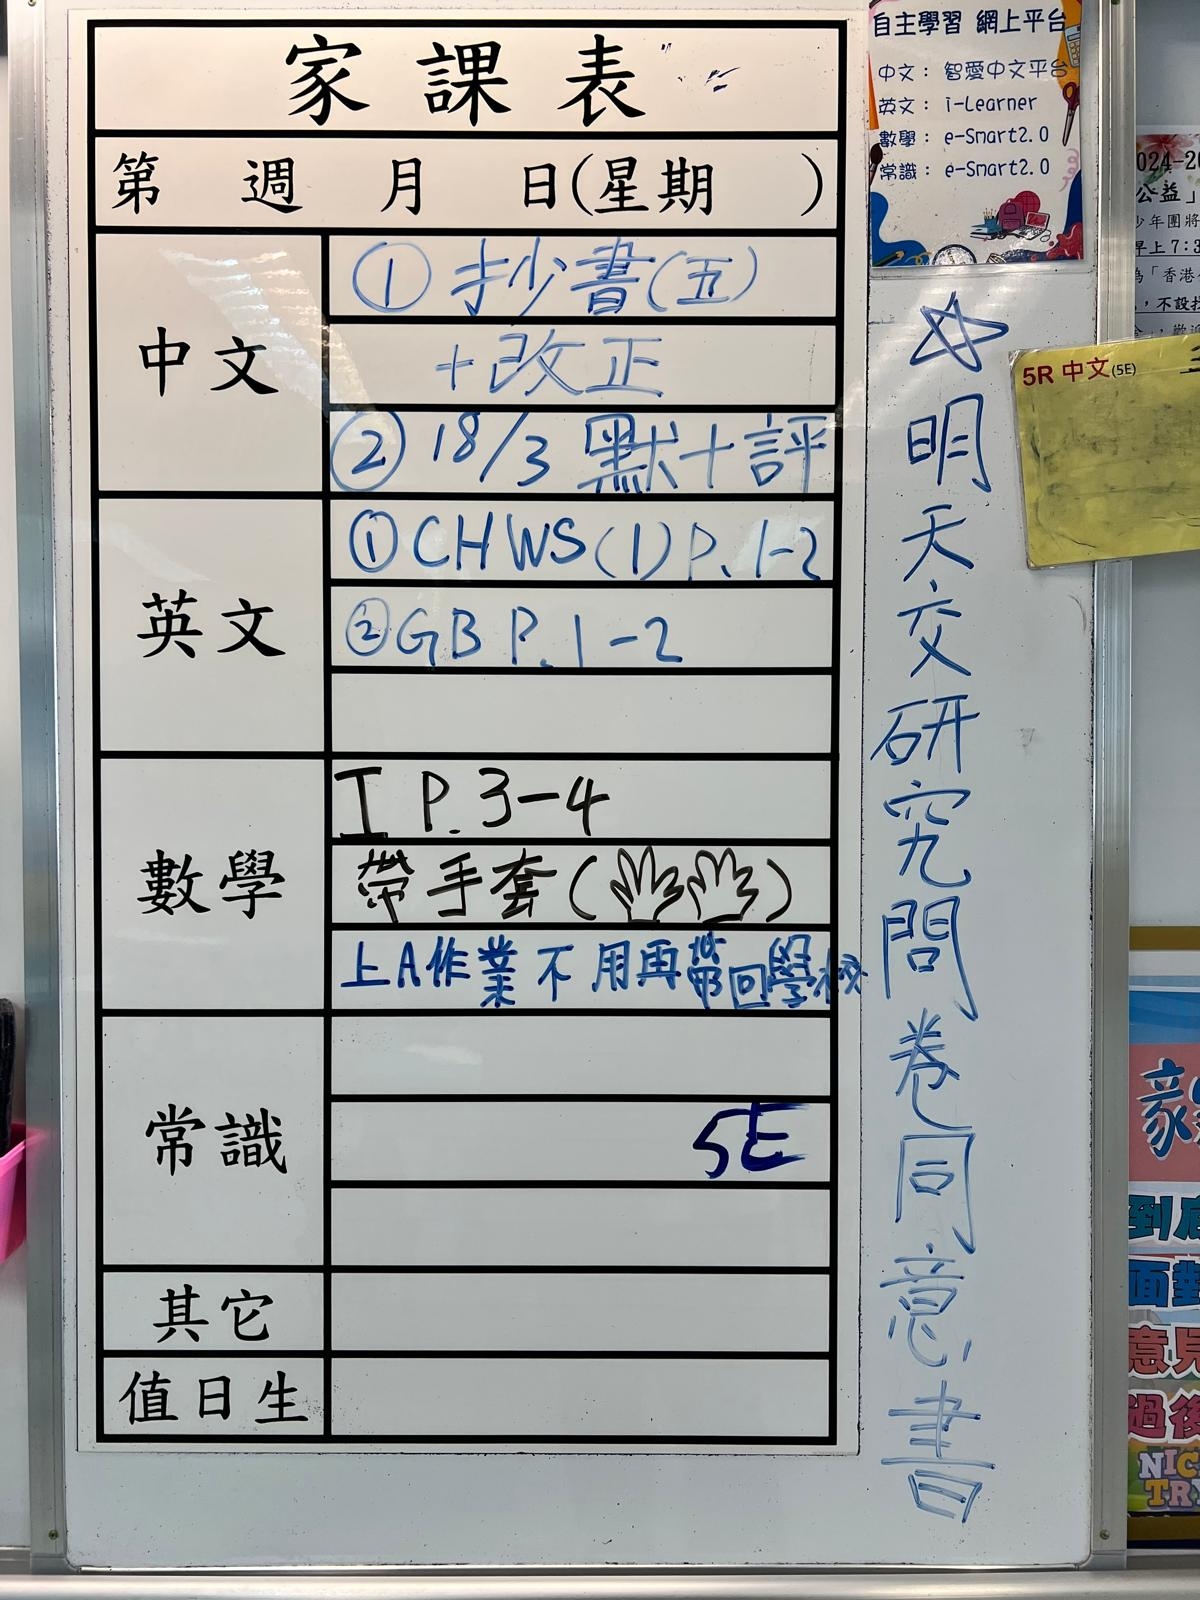 家課表
第 週 月 日(星期 )
中文
① 抄書(五)
+改正
② 18/3 默+評
英文
① CHWS(1) P.1-2
② GB P.1-2
數學
I P.3-4
帶手套( )
上A作業不用再帶回學校
常識
5E
其它
值日生
☆明天交研究問卷同意書
自主學習 網上平台
中文： 智愛中文平台
英文： i-Learner
數學： e-Smart2.0
常識： e-Smart2.0
5R 中文(5E)
公益」
少年團將
早上 7:3
為「香港
，不設找
到底
面對
意見
過後
NIC
TRY